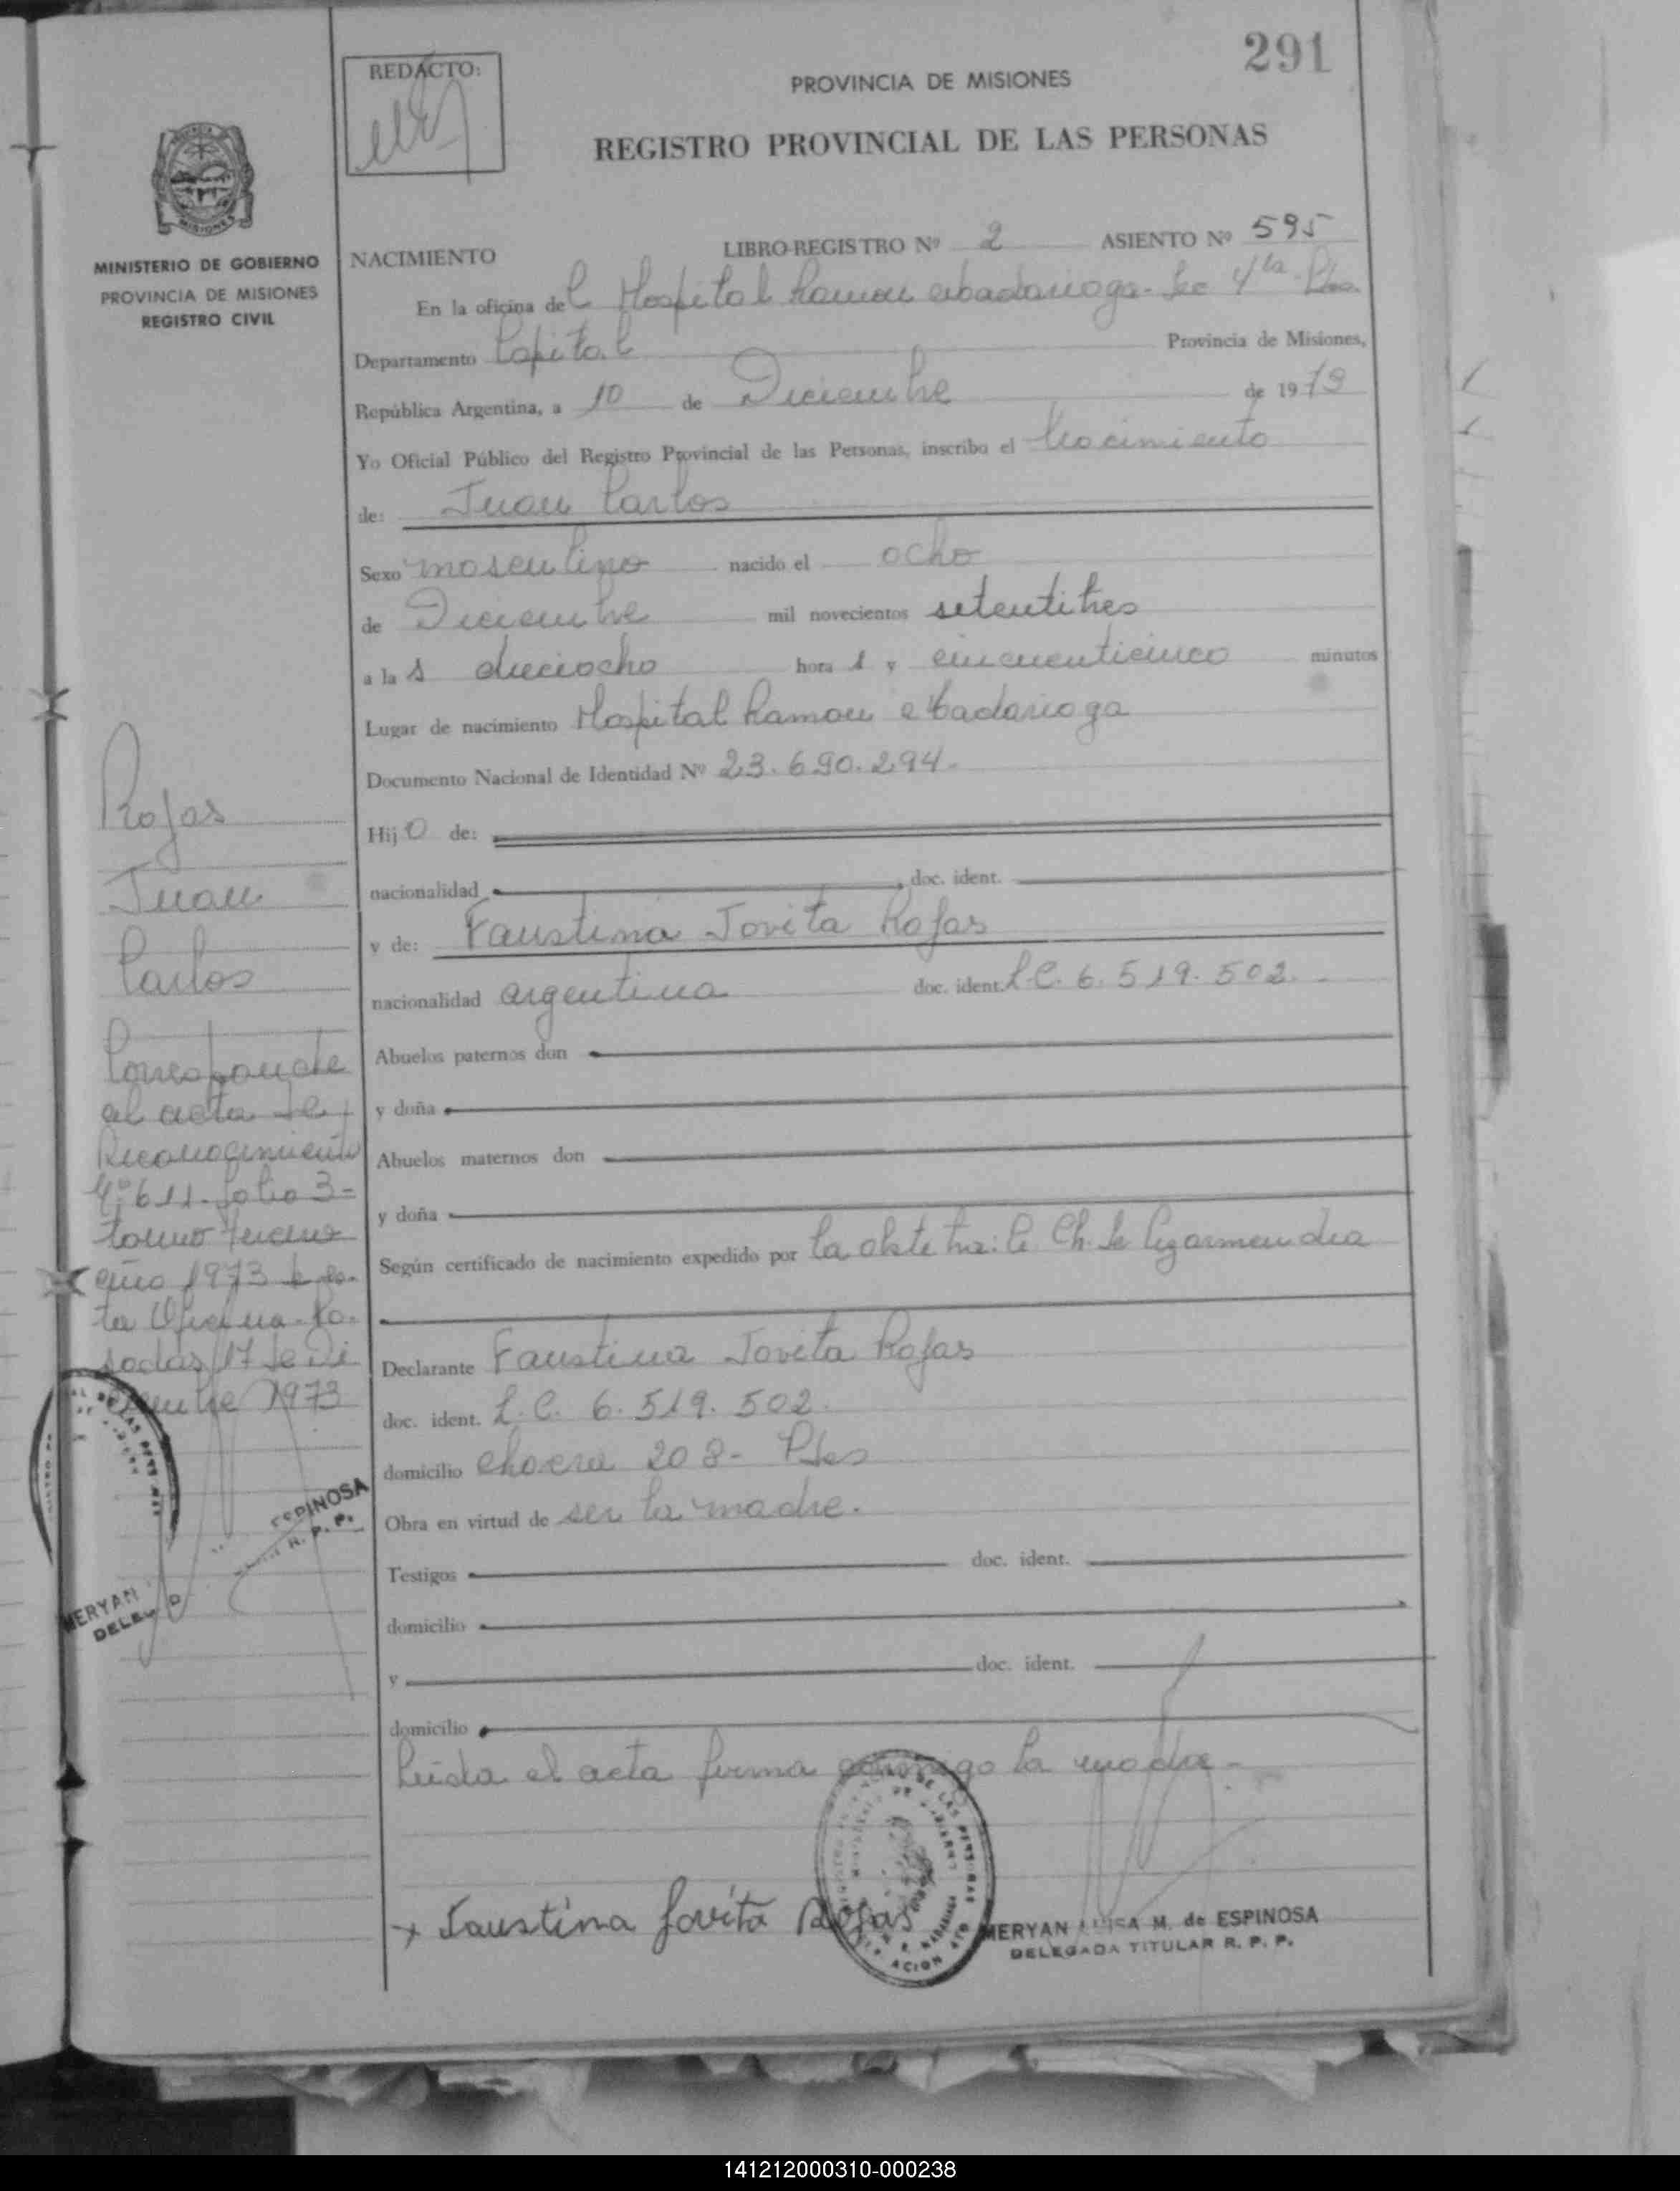 291
REDACTO:
PROVINCIA DE MISIONES
REGISTRO PROVINCIAL DE LAS PERSONAS
MISIONES
MINISTERIO DE GOBIERNO
PROVINCIA DE MISIONES
REGISTRO CIVIL
NACIMIENTO LIBRO-REGISTRO Nº 2 ASIENTO Nº 595
En la oficina del Hospital Ramon Madariaga - 4ta
Departamento Capital Provincia de Misiones,
República Argentina, a 10 de Diciembre de 1973
Yo Oficial Público del Registro Provincial de las Personas, inscribo el Nacimiento
de: Juan Carlos
Sexo masculino nacido el ocho
de Diciembre mil novecientos setentitres
a las dieciocho horas y cincuenticinco minutos
Lugar de nacimiento Hospital Ramon Madariaga
Documento Nacional de Identidad Nº 23.690.294.
Hijo de:
nacionalidad doc. ident.
y de: Faustina Jovita Rojas
nacionalidad argentina doc. ident. L.C. 6.519.502.
Abuelos paternos don
y doña
Abuelos maternos don
y doña
Según certificado de nacimiento expedido por la obstetra: Ch. de
Declarante Faustina Jovita Rojas
doc. ident. L.C. 6.519.502.
domicilio Chacra 208 - Pdas
Obra en virtud de ser la madre.
Testigos doc. ident.
domicilio
y doc. ident.
domicilio
Leida el acta firma conmigo la madre -
x Faustina Jovita Rojas
MERYAN LUISA M. de ESPINOSA
DELEGADA TITULAR R. P. P.
Rojas
Juan
Carlos
Corresponde
al acta de
Reconocimiento
Nº 611. folio 3-
tomo tercero
año 1973 de es-
ta Oficina. Po-
sadas, 17 de Di
ciembre 1973
ESPINOSA
R. P. P.
MERYAN
141212000310-000238